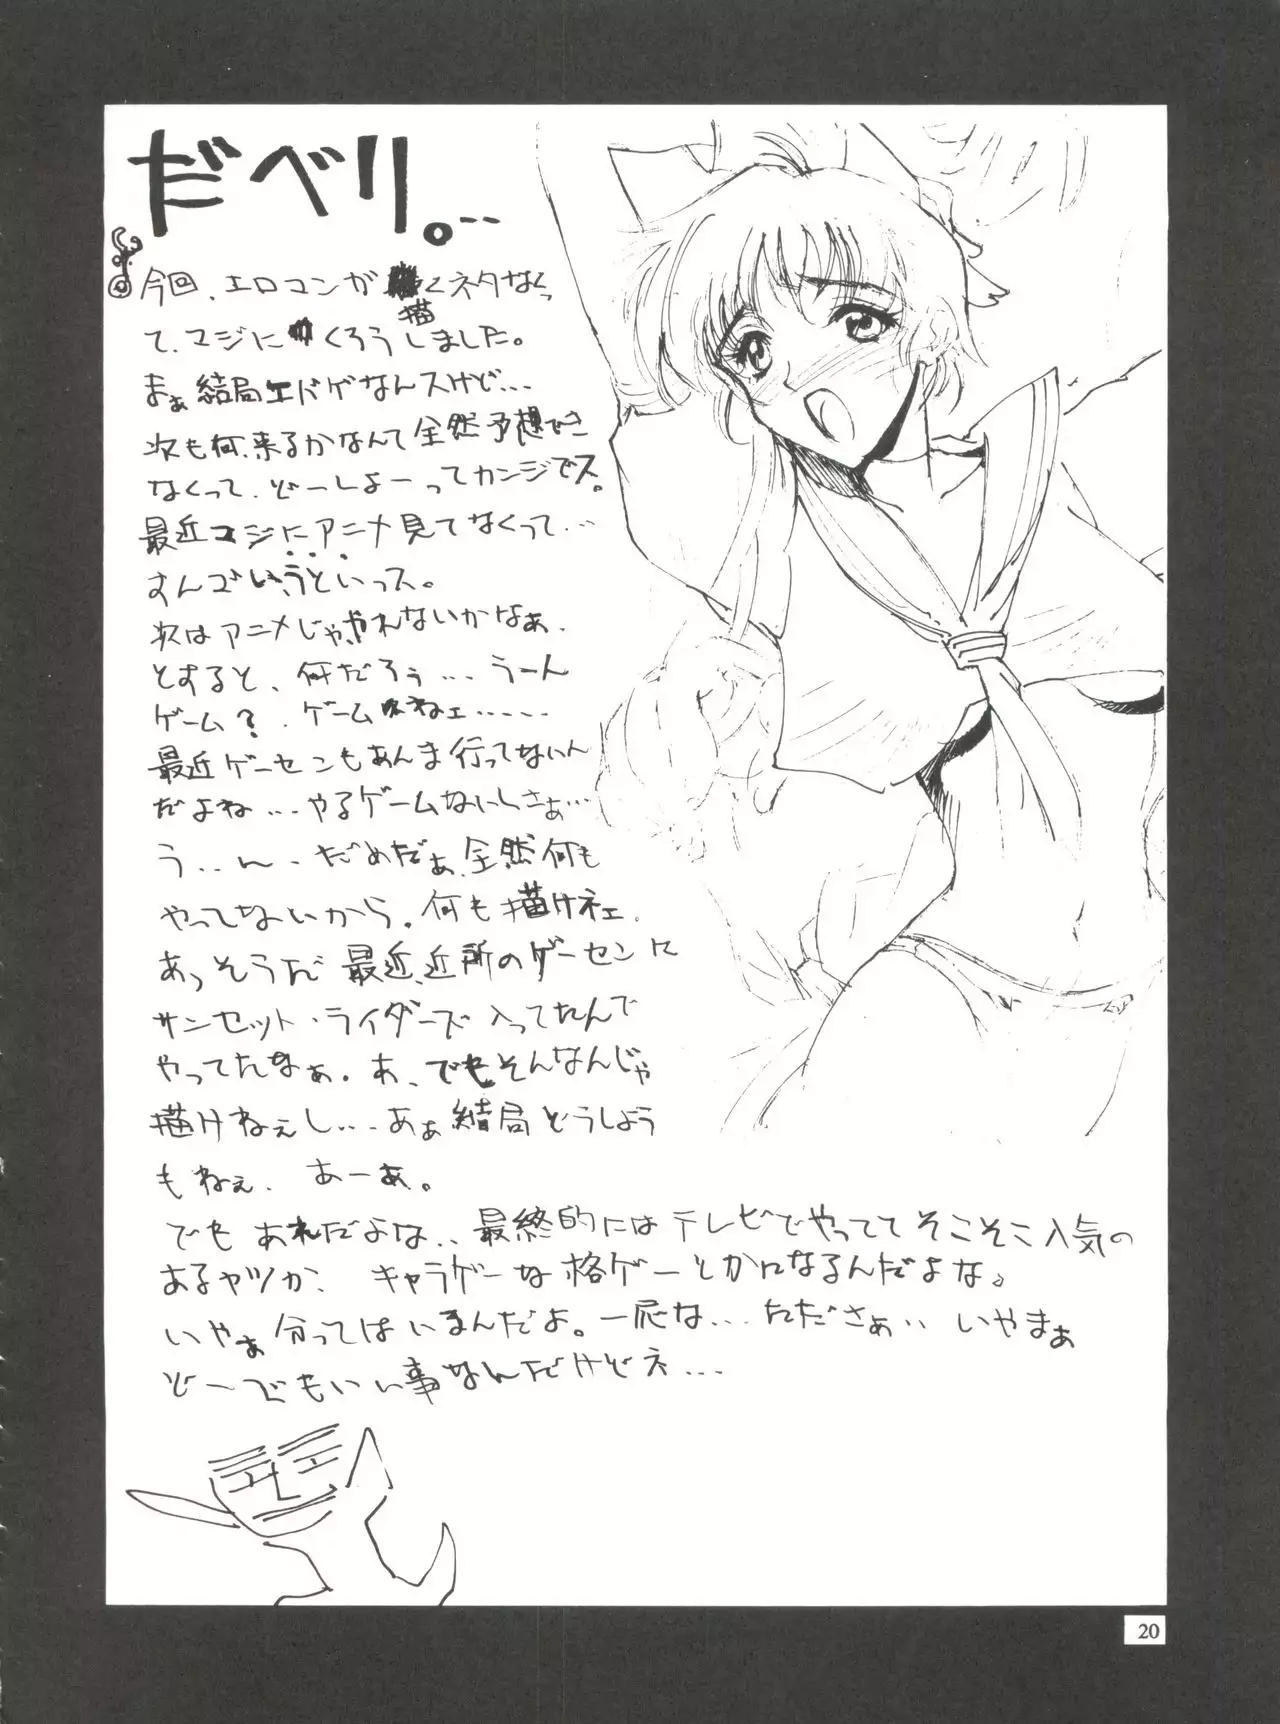 だべり。…
今回、エロマンガ描くネタなくっ
て、マジにくろうしました。
まぁ結局エドゲなんスけど…
次も何来るかなんて全然予想でき
なくって、どーしよーってカンジでス。
最近マジにアニメ見てなくって…
次はアニメじゃ、やれないかなぁ、
とすると、何だろぅ…うーん
ゲーム?、ゲームねェ……
最近ゲーセンもあんま行ってないん
だよね…やるゲームないしさぁ…
う‥ん、だめだぁ、全然何も
やってないから。何も描けネェ、
あっそうだ 最近、近所のゲーセンに
サンセット・ライダーズ入ってたんで
やってたなぁ。あ、でもそんなんじゃ
描けねぇし…あぁ結局どうしよう
もねぇ、あーぁ。
でも あれだよな‥最終的にはテレビでやってて そこそこ人気の
あるヤツか、 キャラゲーな格ゲーとかになるんだよな。
いやぁ 分ってはいるんだよ。一応な… たださぁ‥ いやまぁ
どーでもいい事なんだけどネ…
20